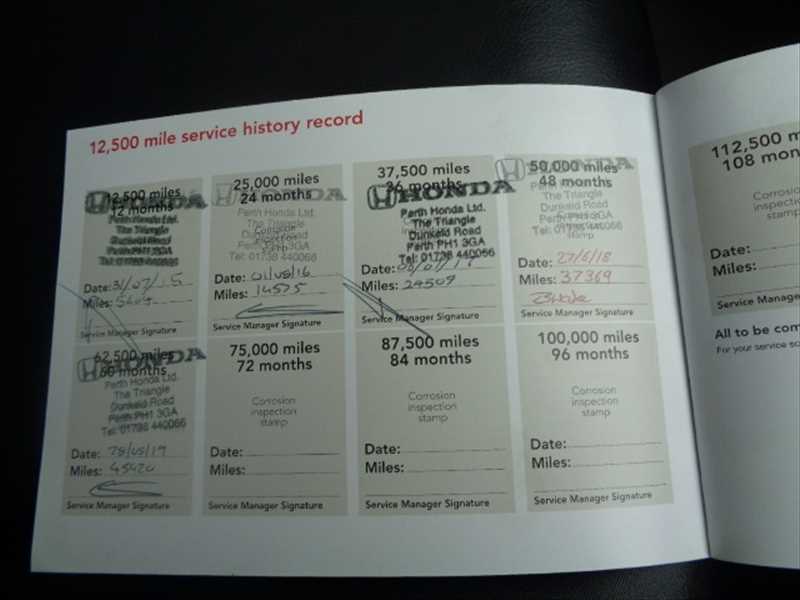 12,500 mile service history record
12,500 miles
12 months
HONDA
Perth Honda Ltd.
The Triangle
Dunkeld Road
Perth PH1 3GA
Tel: 01738 440066
Date: 31/07/15
Miles:
Service Manager Signature
25,000 miles
24 months
HONDA
Perth Honda Ltd.
The Triangle
Dunkeld Road
Perth PH1 3GA
Tel: 01738 440066
Corrosion
inspection
stamp
Date: 01/08/16
Miles: 14575
Service Manager Signature
37,500 miles
36 months
HONDA
Perth Honda Ltd.
The Triangle
Dunkeld Road
Perth PH1 3GA
Tel: 01738 440066
Date:
Miles: 29509
Service Manager Signature
50,000 miles
48 months
HONDA
Perth Honda Ltd.
The Triangle
Dunkeld Road
Perth PH1 3GA
Tel: 01738 440066
Date: 27/6/18
Miles: 37369
Service Manager Signature
62,500 miles
60 months
HONDA
Perth Honda Ltd.
The Triangle
Dunkeld Road
Perth PH1 3GA
Tel: 01738 440066
Date: 28/05/19
Miles: 45420
Service Manager Signature
75,000 miles
72 months
Corrosion
inspection
stamp
Date:
Miles:
Service Manager Signature
87,500 miles
84 months
Corrosion
inspection
stamp
Date:
Miles:
Service Manager Signature
100,000 miles
96 months
Corrosion
inspection
stamp
Date:
Miles:
Service Manager Signature
112,500 m
108 mon
Corrosion
inspection
stamp
Date:
Miles:
Service Manager
All to be com
For your service sc